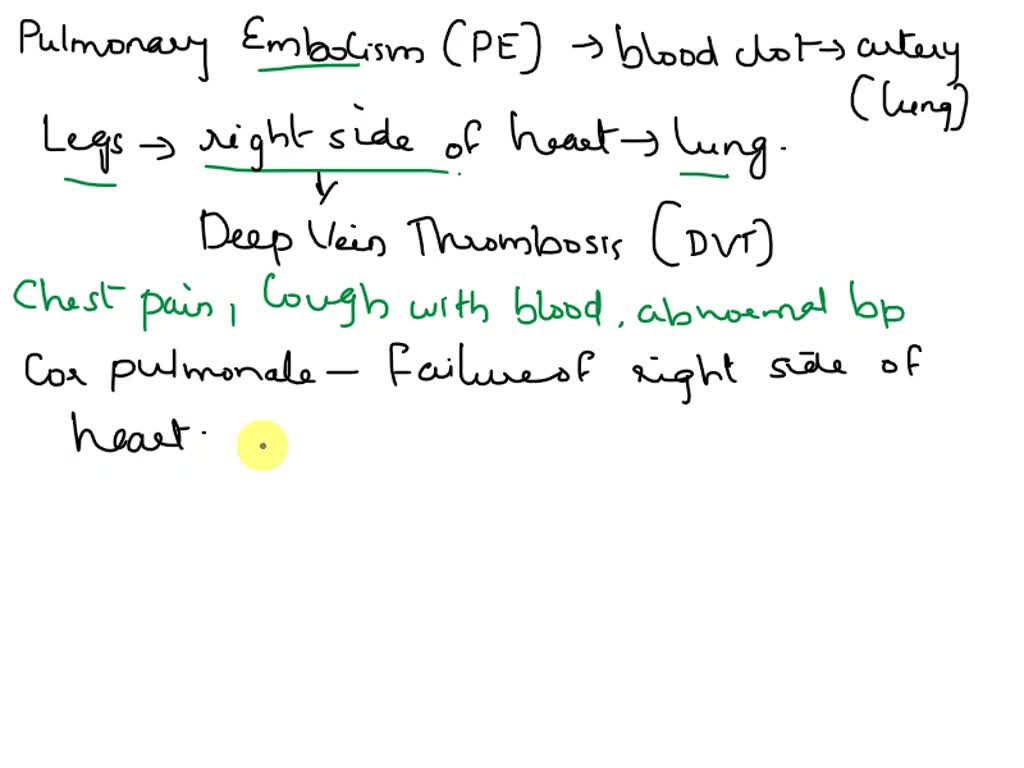 Pulmonary Embolism (PE) → blood clot → artery
(lung)
Legs → right side of heart → lung.
Deep Vein Thrombosis (DVT)
Chest pain, Cough with blood, abnormal bp
Cor pulmonale – Failure of right side of
heart.